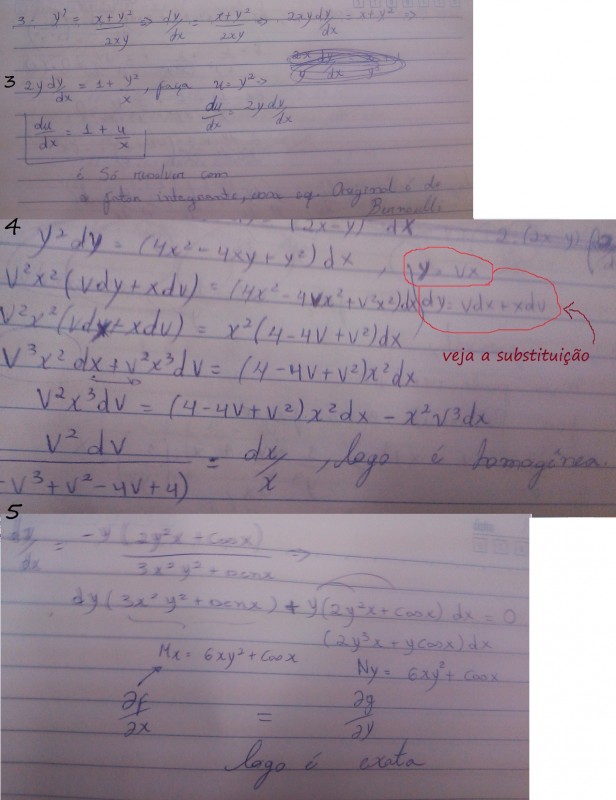 3. y' = x+y²/2xy ⇒ dy/dx = x+y²/2xy ⇒ 2xy dy/dx = x+y² ⇒
3 2y dy/dx = 1 + y²/x, faça u = y² ⇒
du/dx = 2y dy/dx
du/dx = 1 + u/x
é só resolver com
o fator integrante, eq. Original é de
Bernoulli
(2x-y) dx
4 y² dy = (4x² - 4xy + y²) dx, y = vx
v²x²(vdy + xdv) = (4x² - 4vx² + v²x²)dx dy = vdx + xdv
v²x²(vdx + xdv) = x²(4 - 4v + v²)dx
veja a substituição
v³x² dx + v²x³dv = (4 - 4v + v²)x²dx
v²x³dv = (4 - 4v + v²)x²dx - x²v³dx
v² dv/(-v³ + v² - 4v + 4) = dx/x, logo é homogênea
5
dy/dx = -y(2y²x + cosx)/3x²y² + senx ⇒
dy(3x²y² + senx) + y(2y²x + cosx) dx = 0
(2y³x + ycosx)dx
Mx = 6xy² + cosx Ny = 6xy² + cosx
∂f/∂x = ∂g/∂y
logo é exata